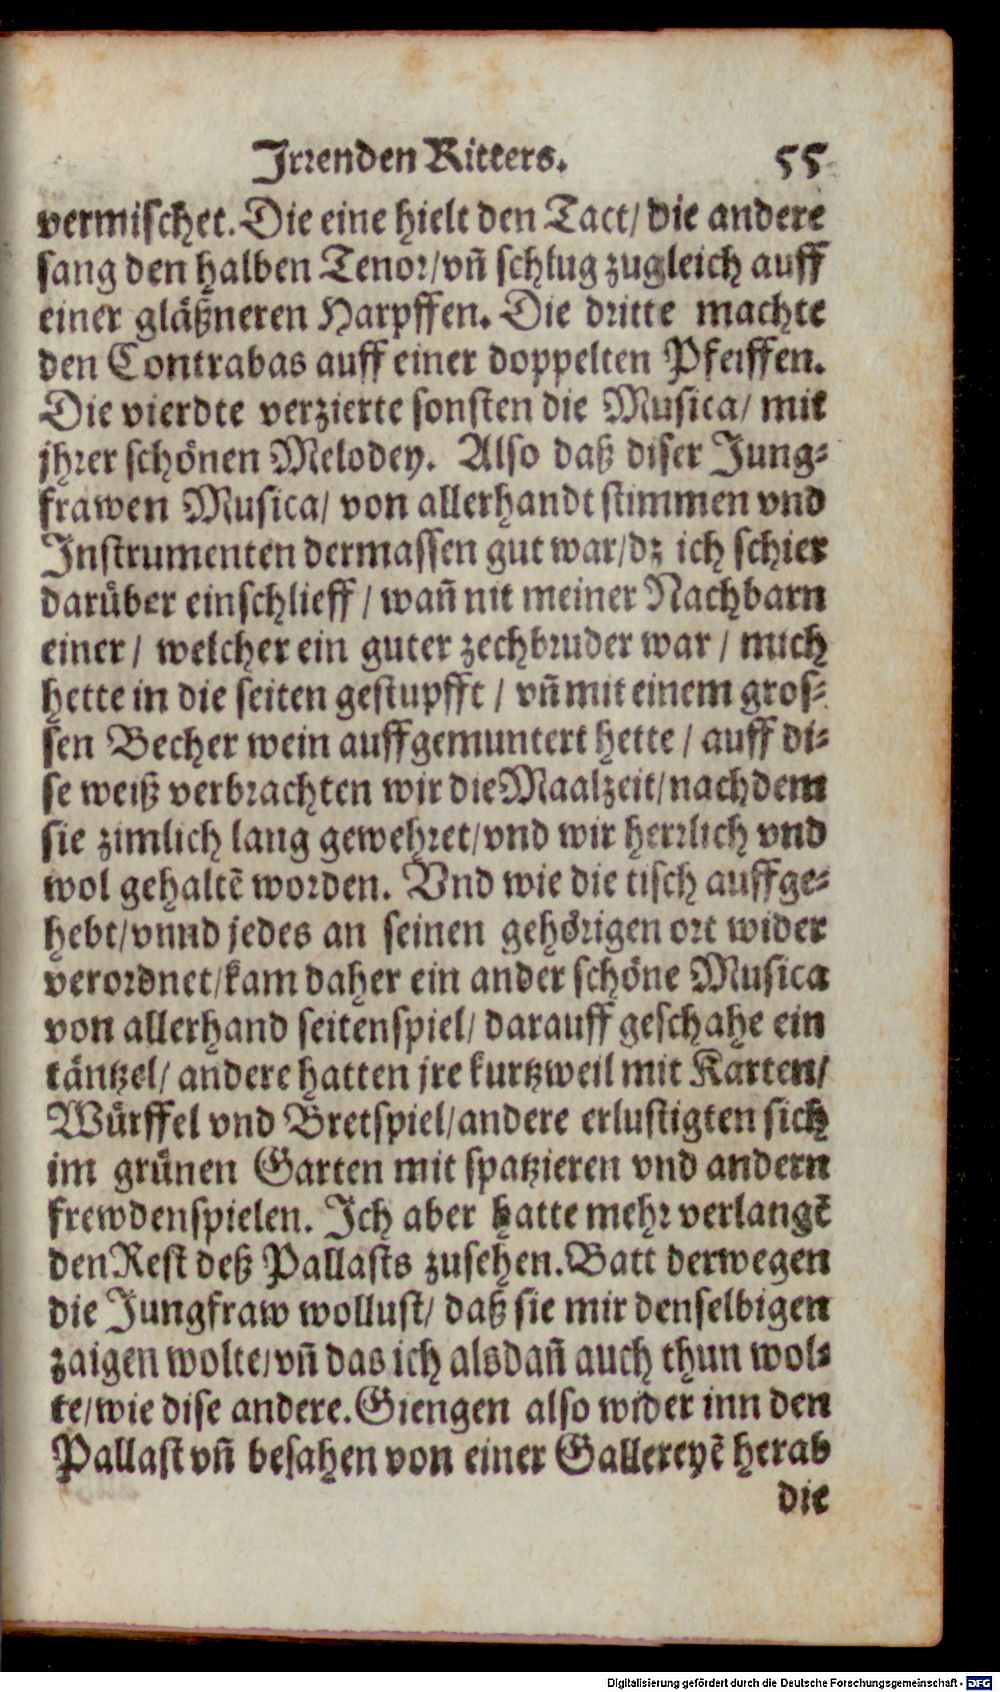 Irrenden Ritters. 55
vermischet. Die eine hielt den Tact/ die andere
sang den halben Tenor/ vñ schlug zugleich auff
einer gläßneren Harpffen. Die dritte machte
den Contrabas auff einer doppelten Pfeiffen.
Die vierdte verzierte sonsten die Musica/ mit
jhrer schönen Melodey. Also daß diser Jung-
frawen Musica/ von allerhandt stimmen vnd
Instrumenten dermassen gut war/ dz ich schier
darüber einschlieff / wañ nit meiner Nachbarn
einer / welcher ein guter zechbruder war / mich
hette in die seiten gestupfft / vñ mit einem gros-
sen Becher wein auffgemuntert hette / auff di-
se weiß verbrachten wir die Maalzeit/ nachdem
sie zimlich lang gewehret/ vnd wir herrlich vnd
wol gehaltē worden. Vnd wie die tisch auffge-
hebt/ vnnd jedes an seinen gehörigen ort wider
verordnet/ kam daher ein ander schöne Musica
von allerhand seitenspiel/ darauff geschahe ein
täntzel/ andere hatten jre kurtzweil mit Karten/
Würffel vnd Bretspiel/ andere erlustigten sich
im grünen Garten mit spatzieren vnd andern
frewdenspielen. Ich aber hatte mehr verlangē
den Rest deß Pallasts zusehen. Batt derwegen
die Jungfraw wollust/ daß sie mir denselbigen
zaigen wolte/ vñ das ich alsdañ auch thun wol-
te/ wie dise andere. Giengen also wider inn den
Pallast vñ besahen von einer Gallereyē herab
die
Digitalisierung gefördert durch die Deutsche Forschungsgemeinschaft - DFG